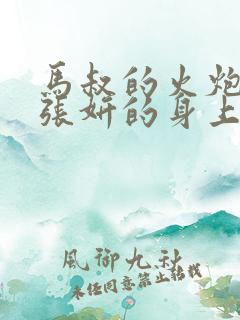 馬叔的火炮
張妍的身上
風御九秋
未经同意禁止转载